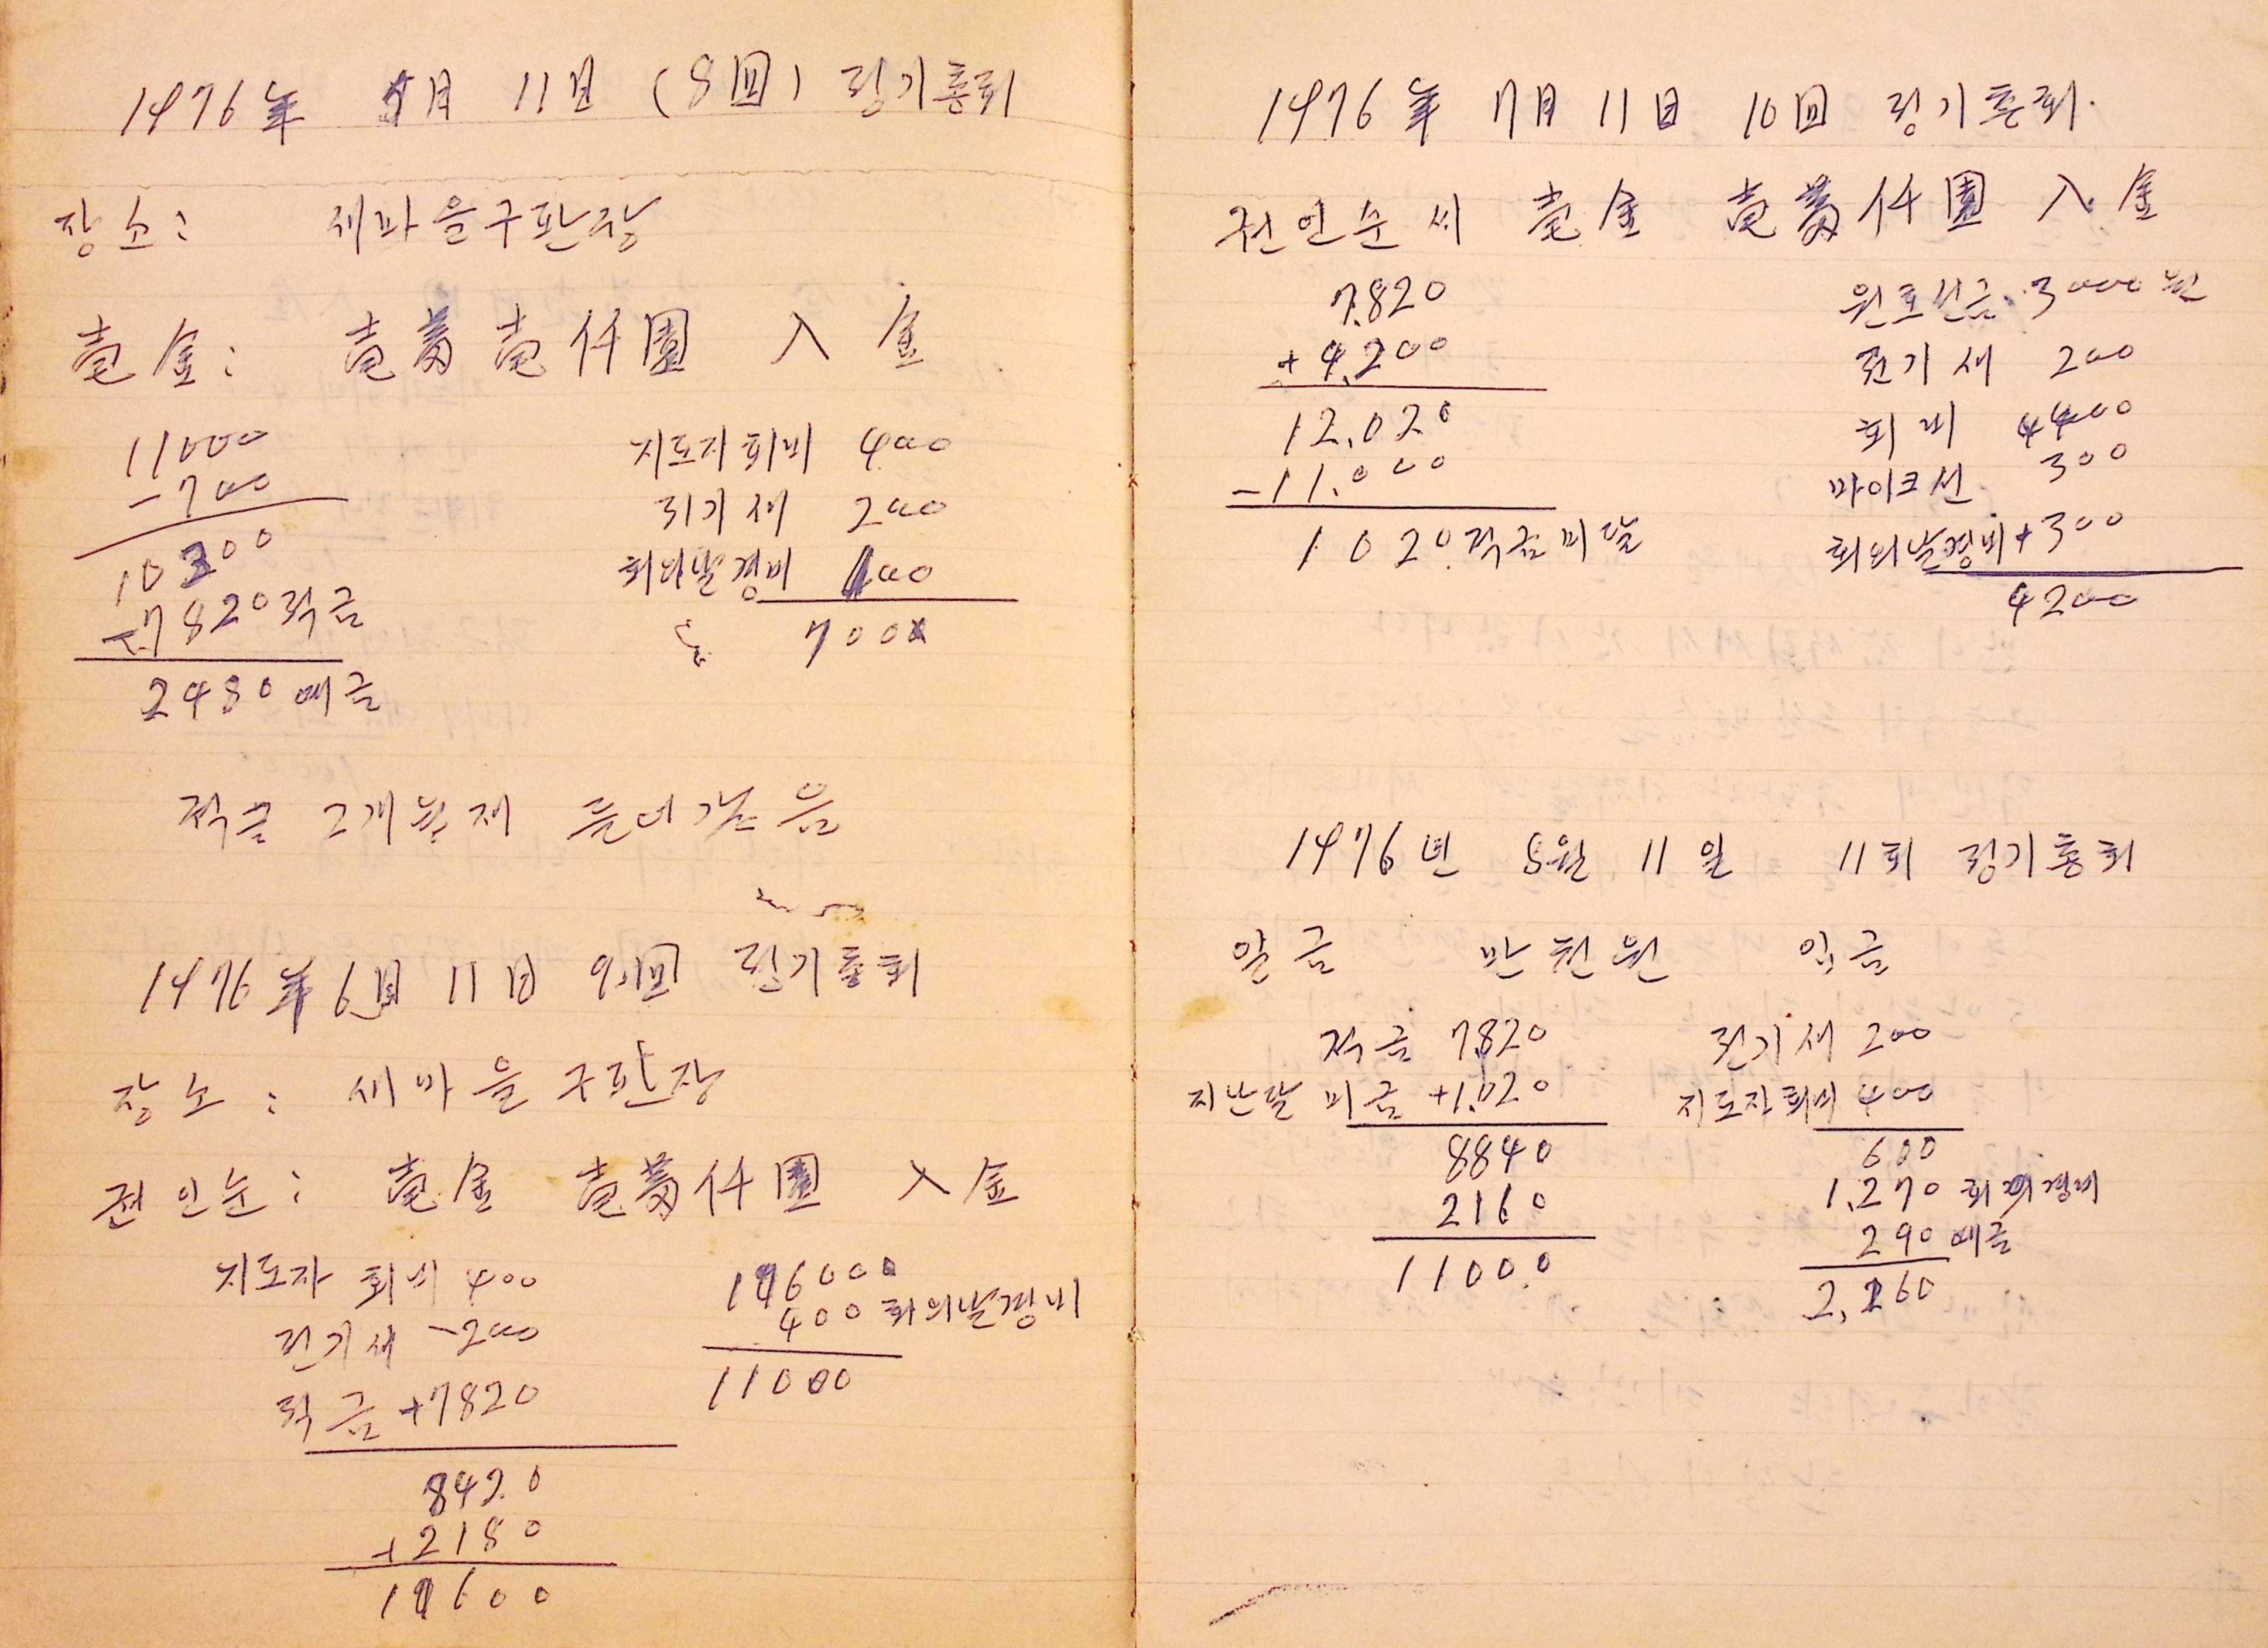 1976年 5月 11日 (8回) 정기총회
장소: 새마을구판장
壱金: 壱萬壱仟圓 入金
11000
-700
10300
-7820 적금
2480 예금
지도자회비 400
전기세 200
회의날경비 100
700
적금 2개분재 들어갔음
1976年 6月 11日 9回 정기총회
장소: 새마을구판장
권인순: 壱金 壱萬仟圓 入金
지도자 회비 400
전기세 -200
적금 +7820
8420
+2180
10600
106000
400 회의날경비
11000
1976年 7月 11日 10回 정기총회.
권인순씨 壱金 壱萬仟圓 入金
7.820
+4.200
12.020
-11.000
1020. 적금미달
원호선금. 3000원
전기세 200
회비 400
마이크선 300
회의날경비 +300
4200
1976년 8월 11일 11회 정기총회
일금 만천원 입금
적금 7.820
지난달 미금 +1.020
8840
2160
11000
전기세 200
지도자회비 400
600
1.270 회의경비
290 예금
2.160